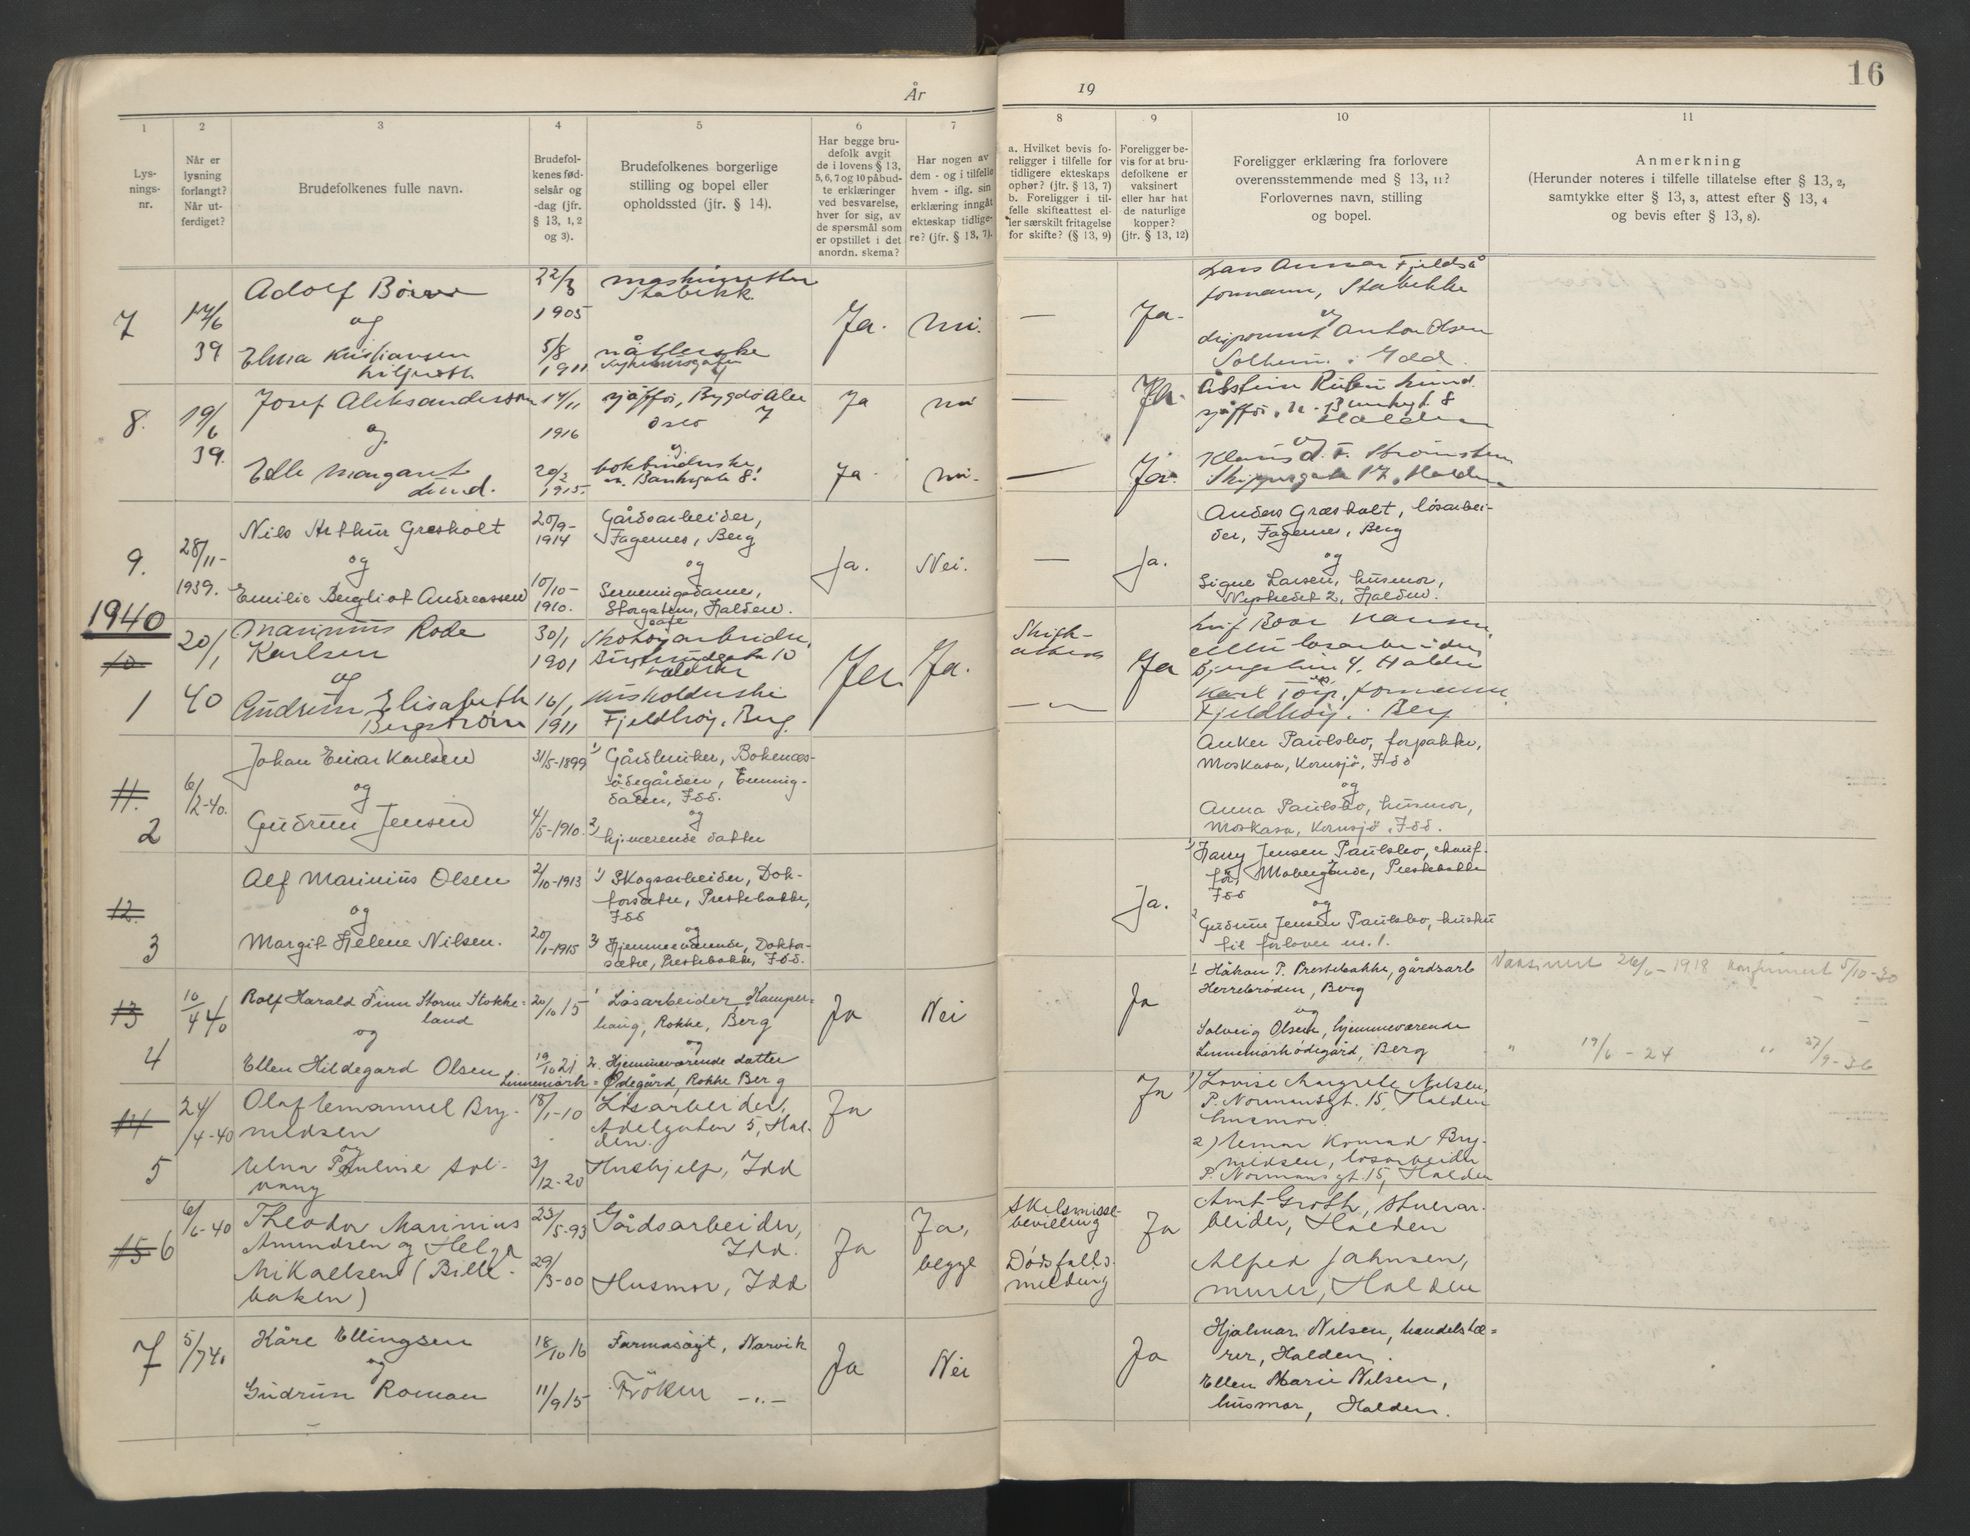 År
19
16
1
2
3
4
5
6
7
8
9
10
11
Lys-
nings-
nr.
Når er
lysning
forlangt?
Når ut-
ferdiget?
Brudefolkenes fulle navn.
Brudefol-
kenes fød-
selsår og
-dag (jfr.
§ 13, 1, 2
og 3).
Brudefolkenes borgerlige
stilling og bopel eller
opholdssted (jfr. § 14).
Har begge bru-
defolk avgit
de i lovens § 13,
5, 6, 7 og 10 påbud-
te erklæringer
ved besvarelse,
hver for sig, av
de spørsmål som
er opstillet i det
anordn. skema?
Har nogen av
dem - og i tilfelle
hvem - iflg. sin
erklæring inngåt
ekteskap tidlige-
re? (jfr. § 13, 7).
a. Hvilket bevis fo-
religger i tilfelle for
tidligere ekteskaps
ophør? (jfr. § 13, 7)
b. Foreligger i til-
felle skifteattest el-
ler særskilt fritagelse
for skifte? (§ 13, 9)
Foreligger be-
vis for at bru-
defolkene er
vaksinert
eller har hat
de naturlige
kopper?
(jfr. § 13, 12)
Foreligger erklæring fra forlovere
overensstemmende med § 13, 11?
Forlovernes navn, stilling
og bopel.
Anmerkning
(Herunder noteres i tilfelle tillatelse efter § 13, 2,
samtykke efter § 13, 3, attest efter § 13, 4
og bevis efter § 13, 8).
7
17/6
39
Adolf
og
Elna Kristiansen
22/3
1905
5/8
1911
Stabekk
Ja.
nei.
—
Ja.
Lars Fjeldså
formann, Stabekk
og
Anton Olsen
Solheim i Idd.
8.
19/6
39.
Josef Aleksandersen
og
Elle Margaret
Lund.
14/11
1916
20/2
1915.
sjåffør, Bygdø Alle
7
Oslo
og
bokbinderske,
Bankgate 8.
Ja
nei
Ja.
nei.
—
—
Ja.
Ja.
Lund.
sjåffør, Bankgt. 8
Halden
og
Klaus d. F. Strømsten
Skippergata 17, Halden
9.
28/11-
1939.
Nils Arthur Gresholt
og
Emilie Bergliot Andreassen
20/9-
1914
10/10-
1910.
Gårdsarbeider,
Fagernes, Berg
og
Serveringsdame,
Storgatens cafe, Halden.
Ja.
Nei.
—
Ja.
Anders Græsholt, løsarbei-
der, Fagernes, Berg
og
Signe Larsen, husmor,
Nystedet 2, Halden.
1940
10
1
20/1
40
Marinius Rode
Karlsen
og
Gudrun Elisabeth
Bergstrøm
30/1
1901
16/1
1911
Skotøyarbeider,
10
Halden
Husholderske
Fjeldhøy, Berg.
Ja.
Ja.
Skifte-
attest
—„—
Ja
Leif Roar Hansen,
løsarbeider,
4, Halden
og
Karl Torp, formann,
Fjeldhøy. Berg
11.
2
6/2-40.
Johan Einar Karlsen
og
Gudrun Jensen
31/5-1899
4/5-1910.
1) Gårdbruker, Bokenæs-
ødegården, Enning-
dalen, Idd.
og
2) hj.værende datter
Anker Paulsbo, forpakter,
Moskasa, Kornsjø, Idd
og
Anna Paulsbo, husmor,
Moskasa, Kornsjø, Idd.
12.
3
Alf Marinius Olsen
og
Margit Helene Nilsen.
2/10-1913
20/1-1915
1) Skogsarbeider, Dok-
torsætre, Prestebakke,
Idd
og
2) Hjemmeværende, Doktor-
sætre, Prestebakke, Idd.
Ja.
1) Harry Jensen Paulsbo, chauf-
før, Prestebakke
Idd
og
2 Gudrun Jensen Paulsbo, hustru
til forlover nr. 1.
13
4
10/4 40
Rolf Harald Finn Storm Stokke-
land
og
Ellen Hildegard Olsen
20/10 15
19/10 21
1 Løsarbeider Kamper-
haug, Rokke, Berg
og
2. Hjemmeværende datter
Linnemark=Ødegård, Rokke Berg
Ja
Nei
Ja
1 Håkon P. Prestebakke, gårdsarb
Herrebrøden, Berg
og
Solveig Olsen, hjemmeværende
Linnemarkødegård, Berg
Vaksinert 26/6-1918 konfirmert 5/10-30
" 19/6-24 " 27/9-36
14
5
24/4-40
Olaf Emanuel Bry-
nildsen
og
Elna Pauline Sol-
vang
18/1-10
3/12-20
Løsarbeider,
Adelgaten 5, Hal-
den.
Hushjelp, Idd
Ja
Ja
1) Lovise Margrete Nilsen,
P. Normansgt. 15, Halden
husmor.
2) Einar Konrad Bry-
nildsen, løsarbeider
P. Normansgt. 15, Halden
15 6
6/6-40
Theodor Marinius
Amundsen og Helga
Mikaelsen (Bille-
baken)
23/5-93
29/3-00
Gårdsarbeider,
Idd.
Husmor, Idd
Ja
Ja,
begge
Skilsmisse-
bevilling
Dødsfalls-
melding
Ja
Arnt Groth, stuerar-
beider, Halden
Alfred Jahnsen,
murer, Halden
7
5/7 40
Kåre Ellingsen
og
Gudrun Roman
18/10 16
11/9 15
Farmasøyt, Narvik
Frøken —„—
Ja
Nei
Ja
Hjalmar Nilsen, handelslæ=
rer, Halden.
Ellen Marie Nilsen,
husmor, Halden.